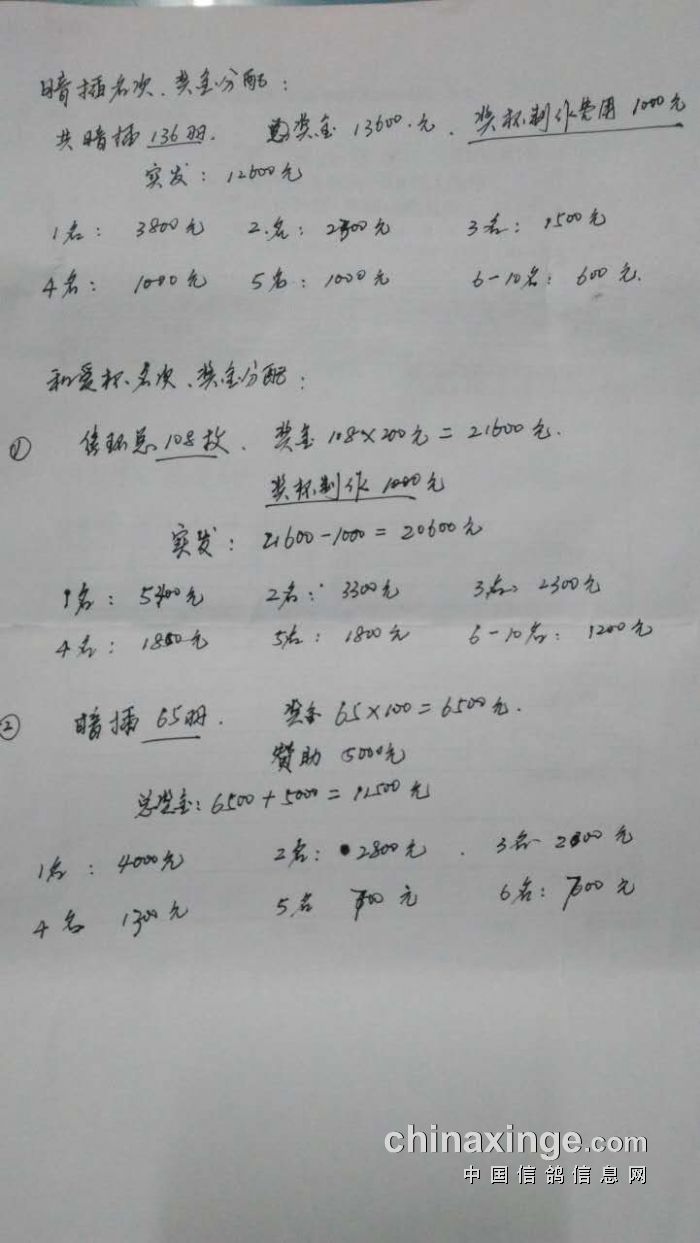 暗插名次、奖金分配：
共暗插136羽. 总奖金13600.元. 奖杯制作费用1000元
实发：12600元
1名：3800元 2.名：2300元 3名：1500元
4名：1000元 5名：1000元 6-10名：600元.
和爱杯名次、奖金分配：
① 售环总108枚. 奖金108×200元=21600元.
奖杯制作1000元
实发：21600-1000=20600元
1名：5400元 2名：3300元 3名：2300元
4名：1800元 5名：1800元 6-10名：1200元
② 暗插65羽. 奖金65×100=6500元.
赞助5000元
总奖金：6500+5000=11500元
1名：4000元 2名：2800元. 3名 2000元
4名 1300元 5名 700元 6名：700元
chinaxinge.com
中国信鸽信息网